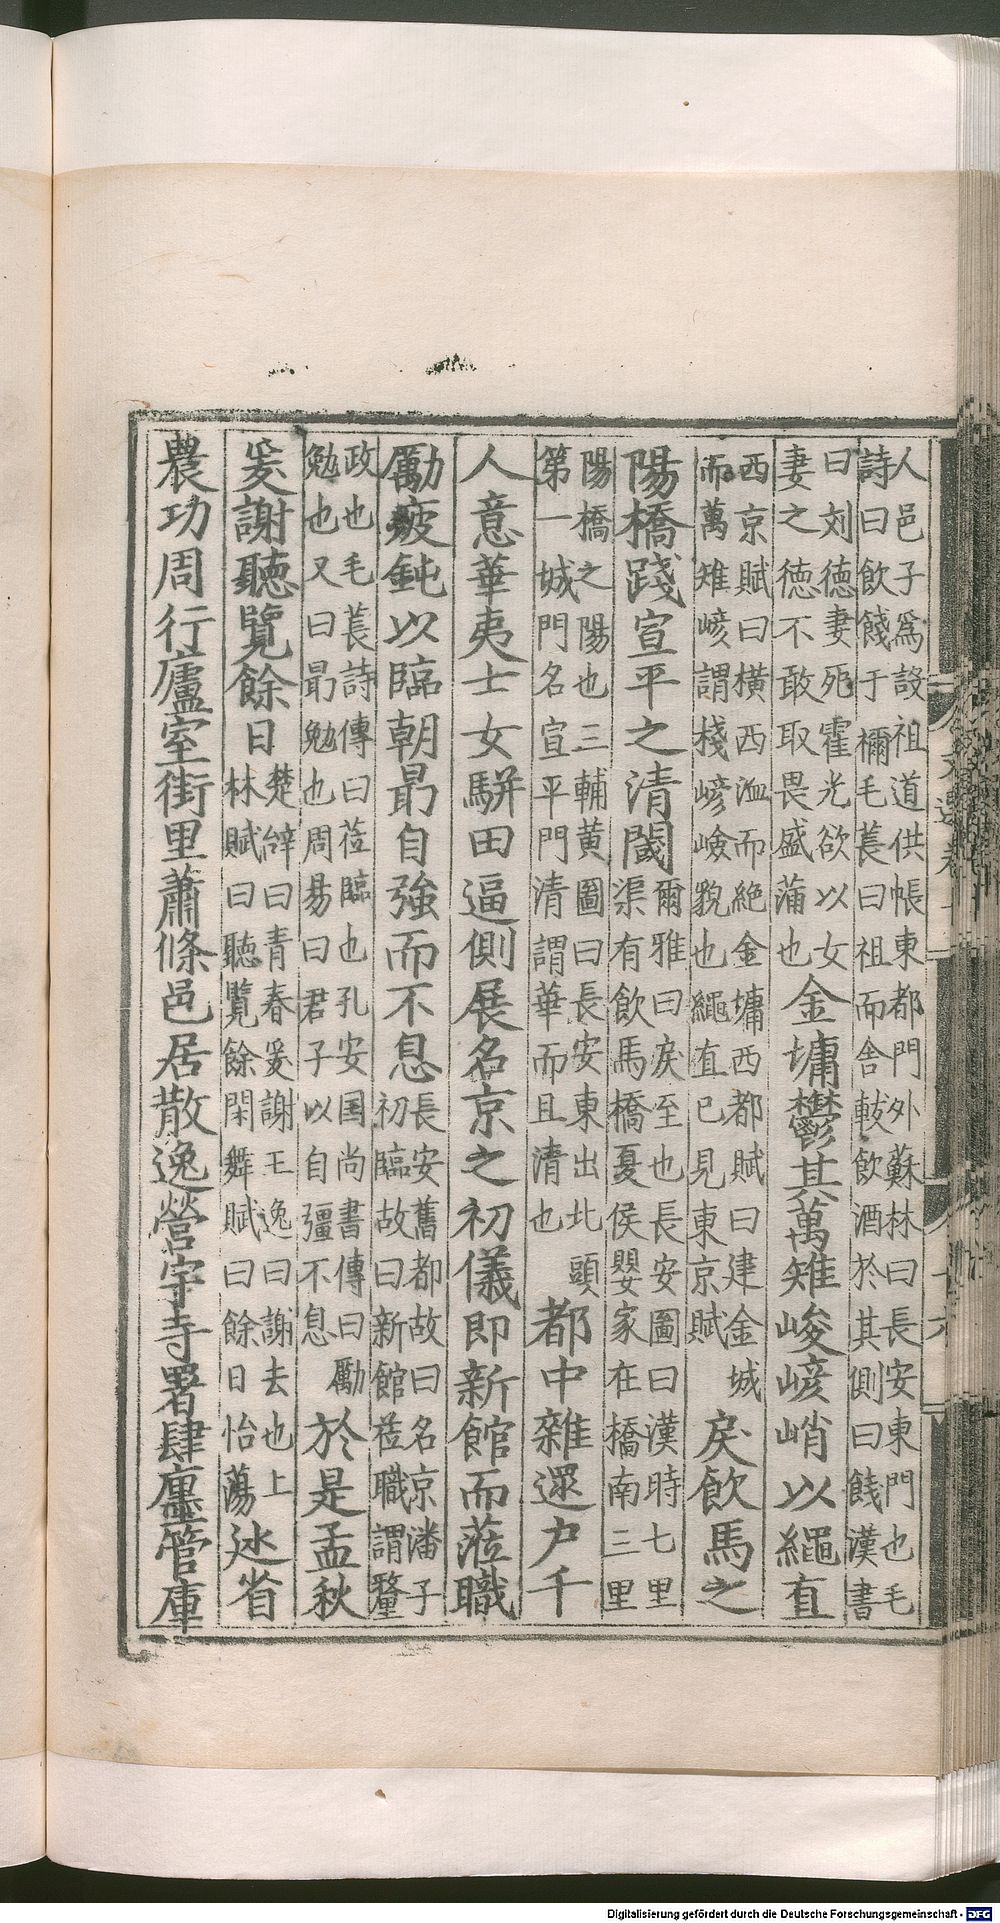 人邑子爲設祖道供帳東都門外蘇林曰長安東門也毛
詩曰飲餞于禰毛萇曰祖而舍軷飲酒於其側曰餞漢書
曰刘德妻死霍光欲以女
妻之德不敢取畏盛蒲也
金墉鬱其萬雉峻嵃峭以繩直
西京賦曰橫西洫而絶金墉西都賦曰建金城
而萬雉嵃謂棧嵃嶮貌也繩直已見東京賦
戾飲馬之
陽橋踐宣平之清閾
爾雅曰戾至也長安圖曰漢時七里
渠有飲馬橋夏侯嬰家在橋南三里
陽橋之陽也三輔黄圖曰長安東出北頭
第一城門名宣平門清謂華而且清也
都中雜遝户千
人意華夷士女駢田逼側展名京之初儀即新館而蒞職
勵疲鈍以臨朝勗自強而不息
長安舊都故曰名京潘子
初臨故曰新館莅職謂釐
政也毛萇詩傳曰莅臨也孔安国尚書傳曰勵
勉也又曰勗勉也周易曰君子以自彊不息
於是孟秋
爰謝聽覽餘日
楚辝曰青春爰謝王逸曰謝去也上
林賦曰聽覽餘閑舞賦曰餘日怡蕩
廵省
農功周行廬室街里蕭條邑居散逸營宇寺署肆廛管庫
Digitalisierung gefördert durch die Deutsche Forschungsgemeinschaft - DFG